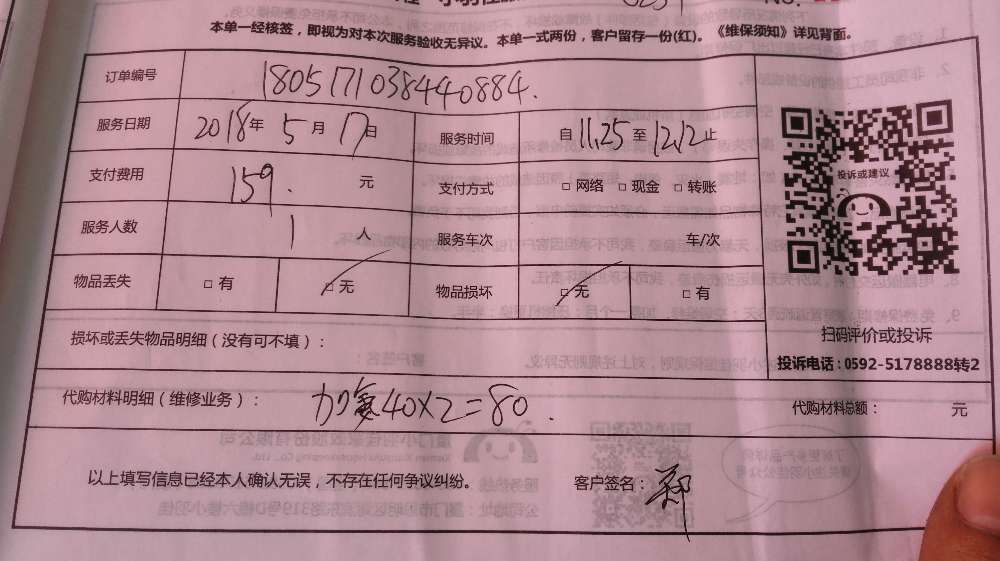 本单一经核签，即视为对本次服务验收无异议。本单一式两份，客户留存一份(红)。《维保须知》详见背面。
订单编号 1805171038440884.
服务日期 2018年 5月 17日 服务时间 自 11.25 至 12.12 止
支付费用 159. 元 支付方式 □ 网络 □ 现金 □ 转账
服务人数 1 人 服务车次 车/次
物品丢失 □ 有 □ 无 物品损坏 □ 无 □ 有
投诉或建议
扫码评价或投诉
投诉电话：0592-5178888转2
损坏或丢失物品明细（没有可不填）：
代购材料明细（维修业务）： 加氟40×2=80. 代购材料总额： 元
以上填写信息已经本人确认无误，不存在任何争议纠纷。 客户签名： 郑